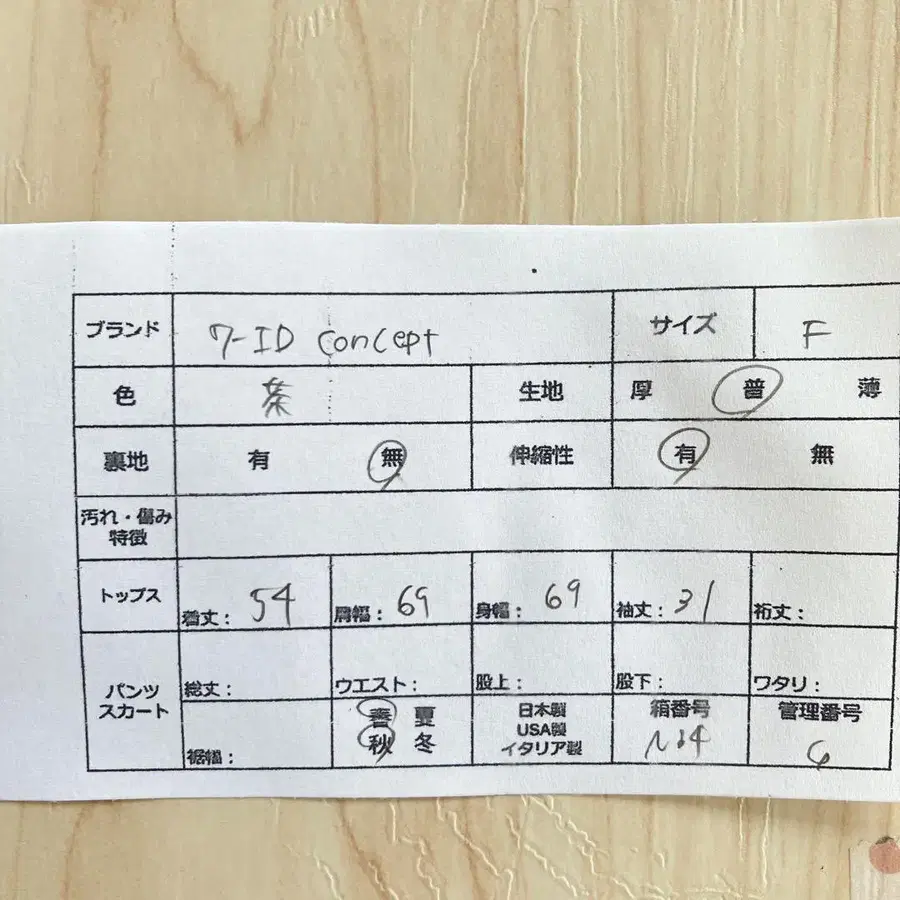 ブランド ワ-ID concept サイズ F
色 茶 生地 厚 普 薄
裏地 有 無 伸縮性 有 無
汚れ・傷み
特徴
トップス 着丈: 54 肩幅: 69 身幅: 69 袖丈: 31 裄丈:
パンツ
スカート
総丈: ウエスト: 股上: 股下: ワタリ:
裾幅:
春 夏
秋 冬
日本製
USA製
イタリア製
箱番号
管理番号
6